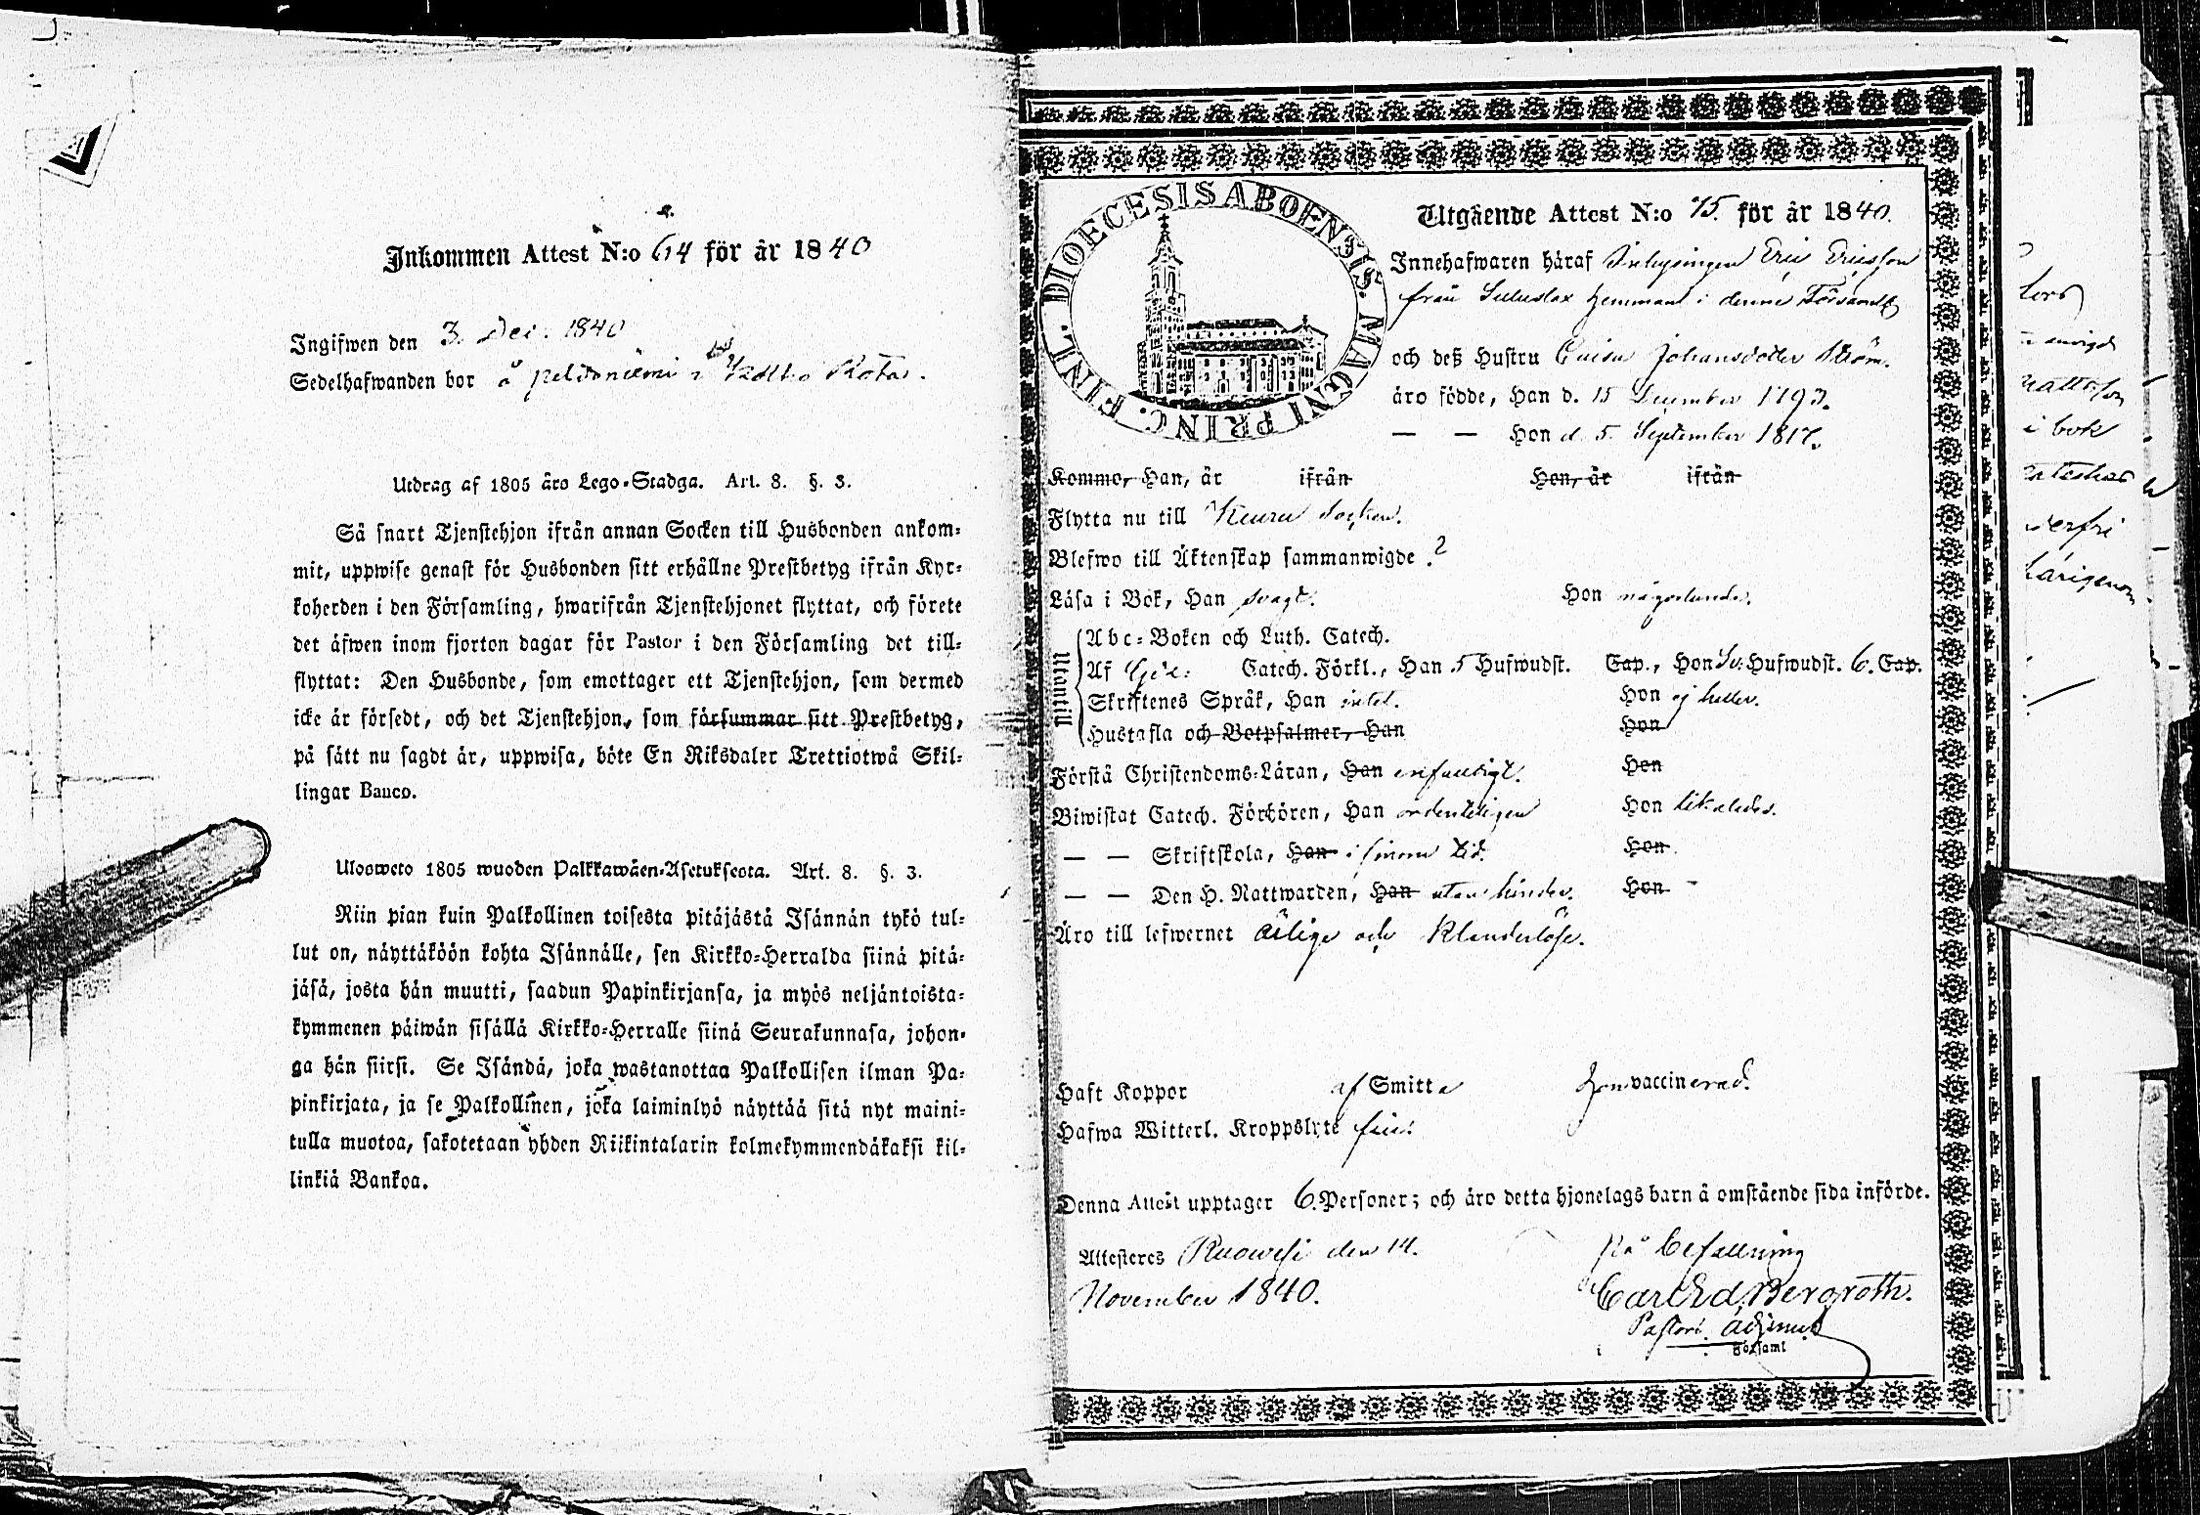 Inkommen Attest N:o 614 för år 1840
Ingifwen den 3. Dec. 1840
Sedelhafwanden bor å peldoniemi
Utdrag af 1805 åro Lego-Stadga. Art. 8. §. 3.
Så snart Tjenstehjon ifrån annan Socken till Husbonden ankom-
mit, uppwise genast för Husbonden sitt erhållne Prestbetyg ifrån Kyr-
koherden i den Församling, hwarifrån Tjenstehjonet flyttat, och förete
det äfwen inom fjorton dagar för Pastor i den Församling det till-
flyttat: Den Husbonde, som emottager ett Tjenstehjon, som dermed
icke är försedt, och det Tjenstehjon, som försummar sitt Prestbetyg,
på sätt nu sagdt är, uppwisa, böte En Riksdaler Trettiotwå Skil-
lingar Banco.
Ulosweto 1805 wuoden Palkkawäen-Asetuksesta. Art. 8. §. 3.
Niin pian kuin Palkollinen toisesta pitäjästä Isännän tykö tul-
lut on, näyttäköön kohta Isännälle, sen Kirkko-Herralda siinä pitä-
jäsä, josta hän muutti, saadun Papinkirjansa, ja myös neljäntoista-
kymmenen päiwän sisällä Kirkko-Herralle siinä Seurakunnasa, johon-
ga hän siirsi. Se Isändä, joka wastanottaa Palkollisen ilman Pa-
pinkirjata, ja se Palkollinen, joka laiminlyö näyttää sitä nyt maini-
tulla muotoa, sakotetaan yhden Riikintalarin kolmekymmendäkaksi kil-
linkiä Bankoa.
DIOECESIS ABOENSIS. MAGNI PRINC. FINL.
Utgående Attest N:o 75. för år 1840.
Innehafwaren häraf Inhysingen Eric Ericsson
från hemmant i denne Församl
och deß Hustru Caisa Johansdotter Ström.
äro födde, Han d. 15 December 1793.
— — Hon d. 5. September 1817.
Kommo, Han, år ifrån Hon, år ifrån
Flytta nu till Keuru Socken.
Blefwo till Äktenskap sammanwigde ?
Läsa i Bok, Han svagt. Hon någorlunda.
Minnit
Abc-Boken och Luth. Catech.
Af Catech. Förkl., Han 5 Hufwudst. Cap., Hon Hufwudst. 6. Cap.
Skriftenes Språk, Han intet. Hon ej heller.
Hustafla och Botpsalmer, Han Hon
Förstå Christendoms-Läran, Han enfaldigt. Hon
Biwistat Catech. Förhören, Han ordenteligen Hon likaledes.
— — Skriftskola, Han i sinom tid. Hon
— — Den H. Nattwarden, Han utan hinder. Hon
Äro till lefwernet ärlige och klanderlöse.
Haft Koppor af Smitta Hon vaccinerad.
Hafwa Witterl. Kroppslyte frie.
Denna Attest upptager 6. Personer; och äro detta hjonelags barn å omstående sida införde.
Attesteres Ruowesi den 14.
November 1840.
På befallning
Carl Ed. Bergroth.
Pastors adjunct
i Församl